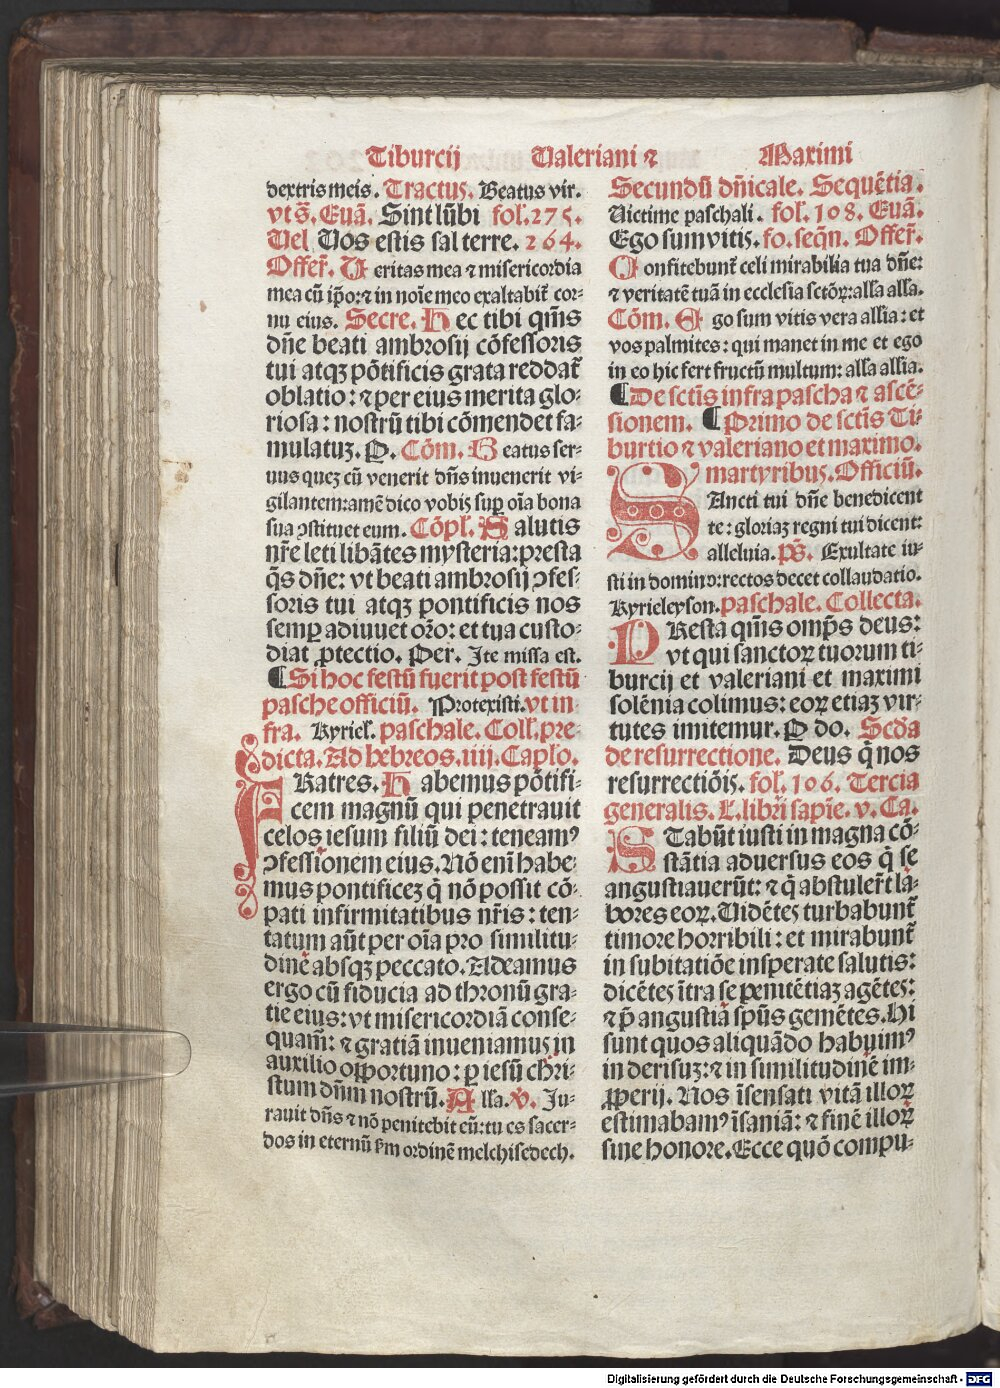 Tiburcij Ualeriani ⁊ Maximi
dextris meis. Tractus. Beatus vir.
vt s̄. Euā. Sint lūbi fol. 275.
Uel Uos estis sal terre. 264.
Offer̄. Ueritas mea ⁊ misericordia
mea cū ip̄o: ⁊ in noīe meo exaltabit̄ cor-
nu eius. Secre. Hec tibi qm̄s
dn̄e beati ambrosij cōfessoris
tui atqꝫ pōtificis grata reddat̄
oblatio: ⁊ per eius merita glo-
riosa: nostrū tibi cōmendet fa-
mulatuꝫ. P. Cōm. Beatus ser-
uus queꝫ cū venerit dn̄s inuenerit vi-
gilantem: amē dico vobis suꝑ oīa bona
sua ꝯstituet eum. Cōpl̄. Salutis
nr̄e leti libātes mysteria: presta
q̄s dn̄e: vt beati ambrosij ꝯfes-
soris tui atqꝫ pontificis nos
semꝑ adiuuet or̄o: et tua custo-
diat ꝓtectio. Per. Ite missa est.
¶ Si hoc festū fuerit post festū
pasche officiū. Protexisti. vt in-
fra. Kyriel̄. paschale. Coll. pre-
dicta. Ad hebreos. iiij. Caplo.
FRatres. Habemus pōtifi-
cem magnū qui penetrauit
celos iesum filiū dei: teneamꝰ
ꝯfessionem eius. Nō enī habe-
mus pontificeꝫ q̄ nō possit cō-
pati infirmitatibus nr̄is: ten-
tatum aūt per oīa pro similitu-
dinē absqꝫ peccato. Adeamus
ergo cū fiducia ad thronū gra-
tie eius: vt misericordiā conse-
quam̄: ⁊ gratiā inueniamus in
auxilio opportuno: ꝑ iesū chri-
stum dn̄m nostrū. Alla. ℣. Ju-
rauit dn̄s ⁊ nō penitebit eū: tu es sacer-
dos in eternū ẜm ordinē melchisedech.
Secundū dn̄icale. Sequētia.
Uictime paschali. fol. 108. Euā.
Ego sum vitis. fo. seqn̄. Offer̄.
Confitebunt̄ celi mirabilia tua dn̄e:
⁊ veritatē tuā in ecclesia sctōꝝ: alla alla.
Cōm. Ego sum vitis vera allia: et
vos palmites: qui manet in me et ego
in eo hic fert fructū multum: alla allia.
¶ De sctis infra pascha ⁊ ascē-
sionem. ¶ Primo de sctis Ti-
burtio ⁊ valeriano et maximo.
martyribus. Officiū.
SAncti tui dn̄e benedicent
te: gloriaꝫ regni tui dicent:
alleluia. ps̄. Exultate iu-
sti in domino: rectos decet collaudatio.
Kyrieleyson. paschale. Collecta.
PResta qm̄s omp̄s deus:
vt qui sanctoꝝ tuorum ti-
burcij et valeriani et maximi
solēnia colimus: eoꝝ etiaꝫ vir-
tutes imitemur. P do. Scd̄a
de resurrectione. Deus q̄ nos
resurrectiōis. fol. 106. Tercia
generalis. L. libri sapīe. v. Ca.
STabūt iusti in magna cō-
stātia aduersus eos q̄ se
angustiauerūt: ⁊ q̄ abstuler̄t la-
bores eoꝝ. Uidētes turbabunt̄
timore horribili: et mirabunt̄
in subitatiōe insperate salutis:
dicētes ītra se penitētiaꝫ agētes:
⁊ p̄ angustiā spūs gemētes. Hi
sunt quos aliquādo habuimꝰ
in derisuꝫ: ⁊ in similitudinē im-
ꝓperij. Nos īsensati vitā illoꝝ
estimabamꝰ īsaniā: ⁊ finē illoꝝ
sine honore. Ecce quō compu-
Digitalisierung gefördert durch die Deutsche Forschungsgemeinschaft - DFG